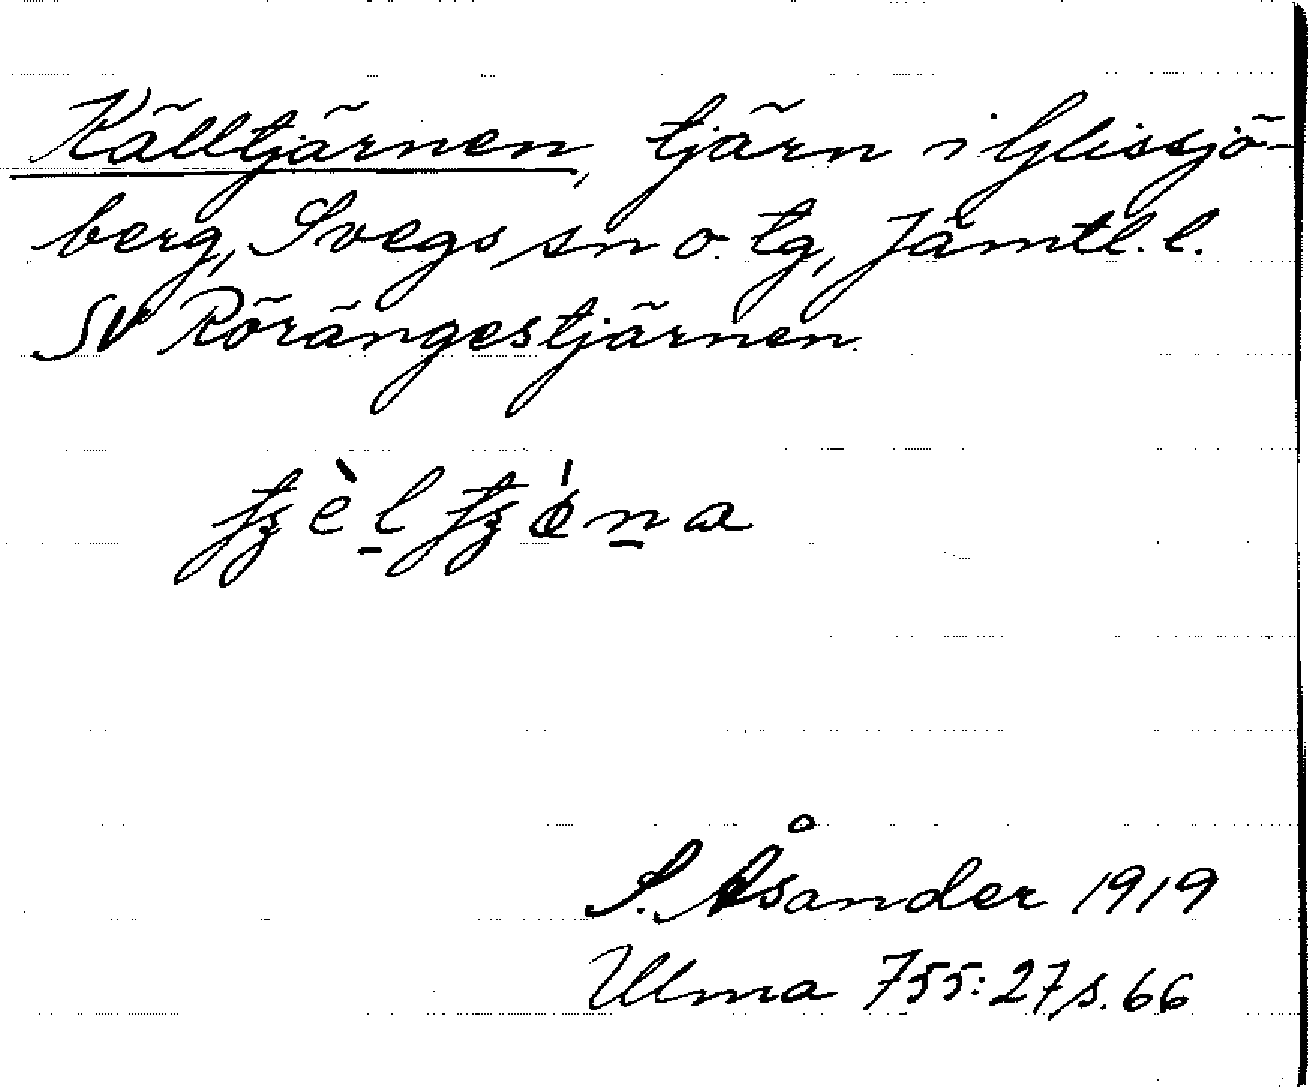 Källtjärnen, tjärn i Glissjö-
berg, Svegs sn o. tg, Jämtl. l.
SV Rörängestjärnen.
S. Åsander 1919
Ulma 755:27 s. 66